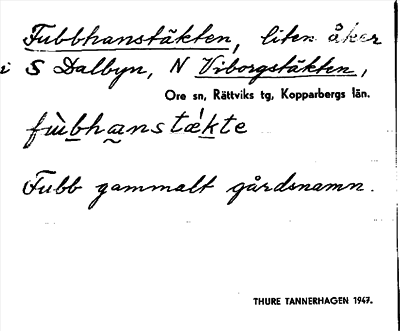 Fubbhanstäkten, liten åker
i S Dalbyn, N Viborgstäkten,
Ore sn, Rättviks tg, Kopparbergs län.
fùbhanstǽkte
Fubb gammalt gårdsnamn.
THURE TANNERHAGEN 1947.